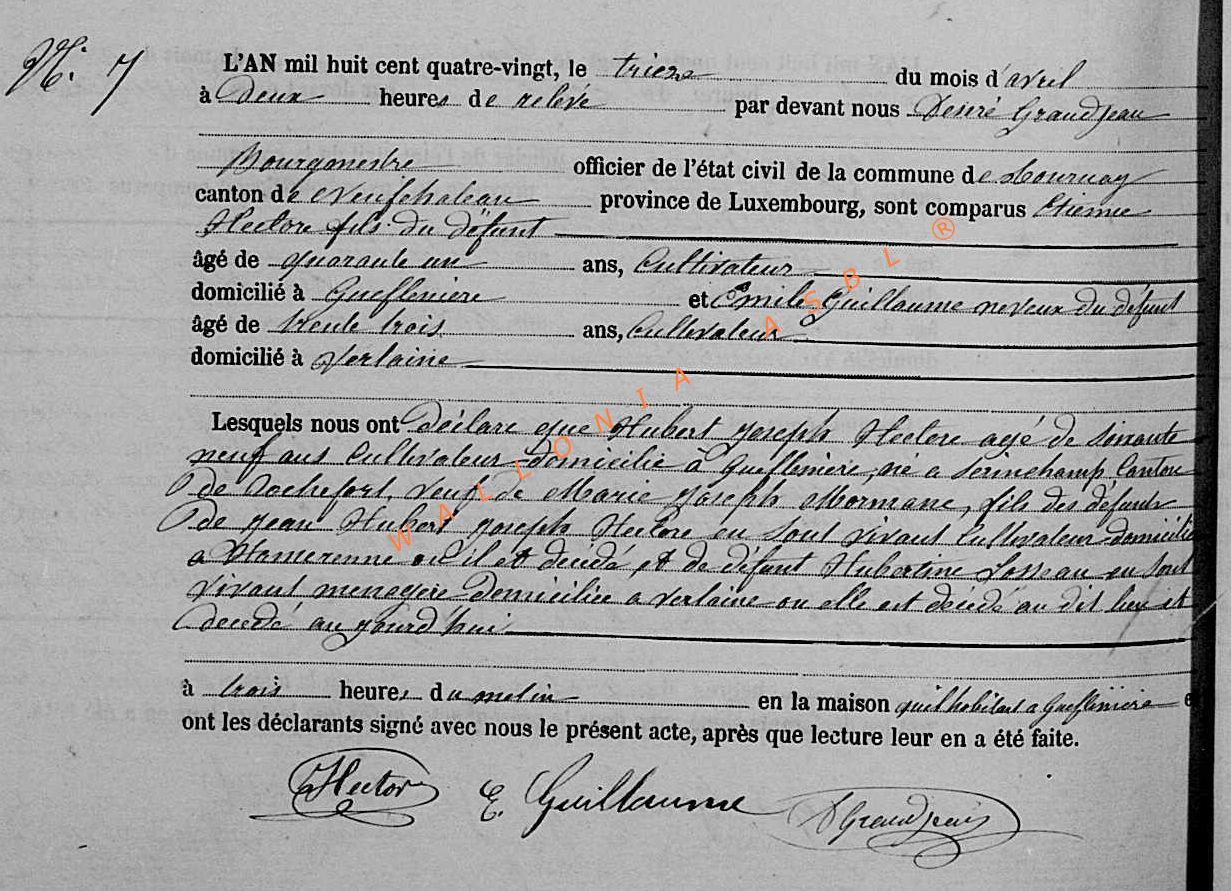 N. 7
L'AN mil huit cent quatre-vingt, le treize du mois d'avril
à Deux heures de relevé par devant nous Desiré Grandjean
Bourgmestre officier de l'état civil de la commune de Tournay
canton de Neufchateau province de Luxembourg, sont comparus Etienne
Hectore fils du défunt
âgé de quarante un ans, Cultivateur
domicilié à Grefleniere et Emile Guillaume neveux du défunt
âgé de trente trois ans, Cultivateur
domicilié à Verlaine
Lesquels nous ont Déclaré que Hubert Joseph Hectore agé de soixante
neuf ans Cultivateur domicilié à Gueflinière, né a Serinchamp, Canton
de Rochefort, veuf de Marie Joseph Mormane, fils des défunts
de Jean Hubert Joseph Hectore en sont vivant Cultivateur domicilié
a Hamerenne où il est décédé, et de défunt Hubertine Losseau en sont
vivant menagère Domiciliée a Verlaine ou elle est décédé au dit lieu et
decedé au jourd'hui
à trois heures du matin en la maison qu'il habitait a Gueflinière et
ont les déclarants signé avec nous le présent acte, après que lecture leur en a été faite.
Hector E. Guillaume D Grandjean
WALLONIA ASBL ®